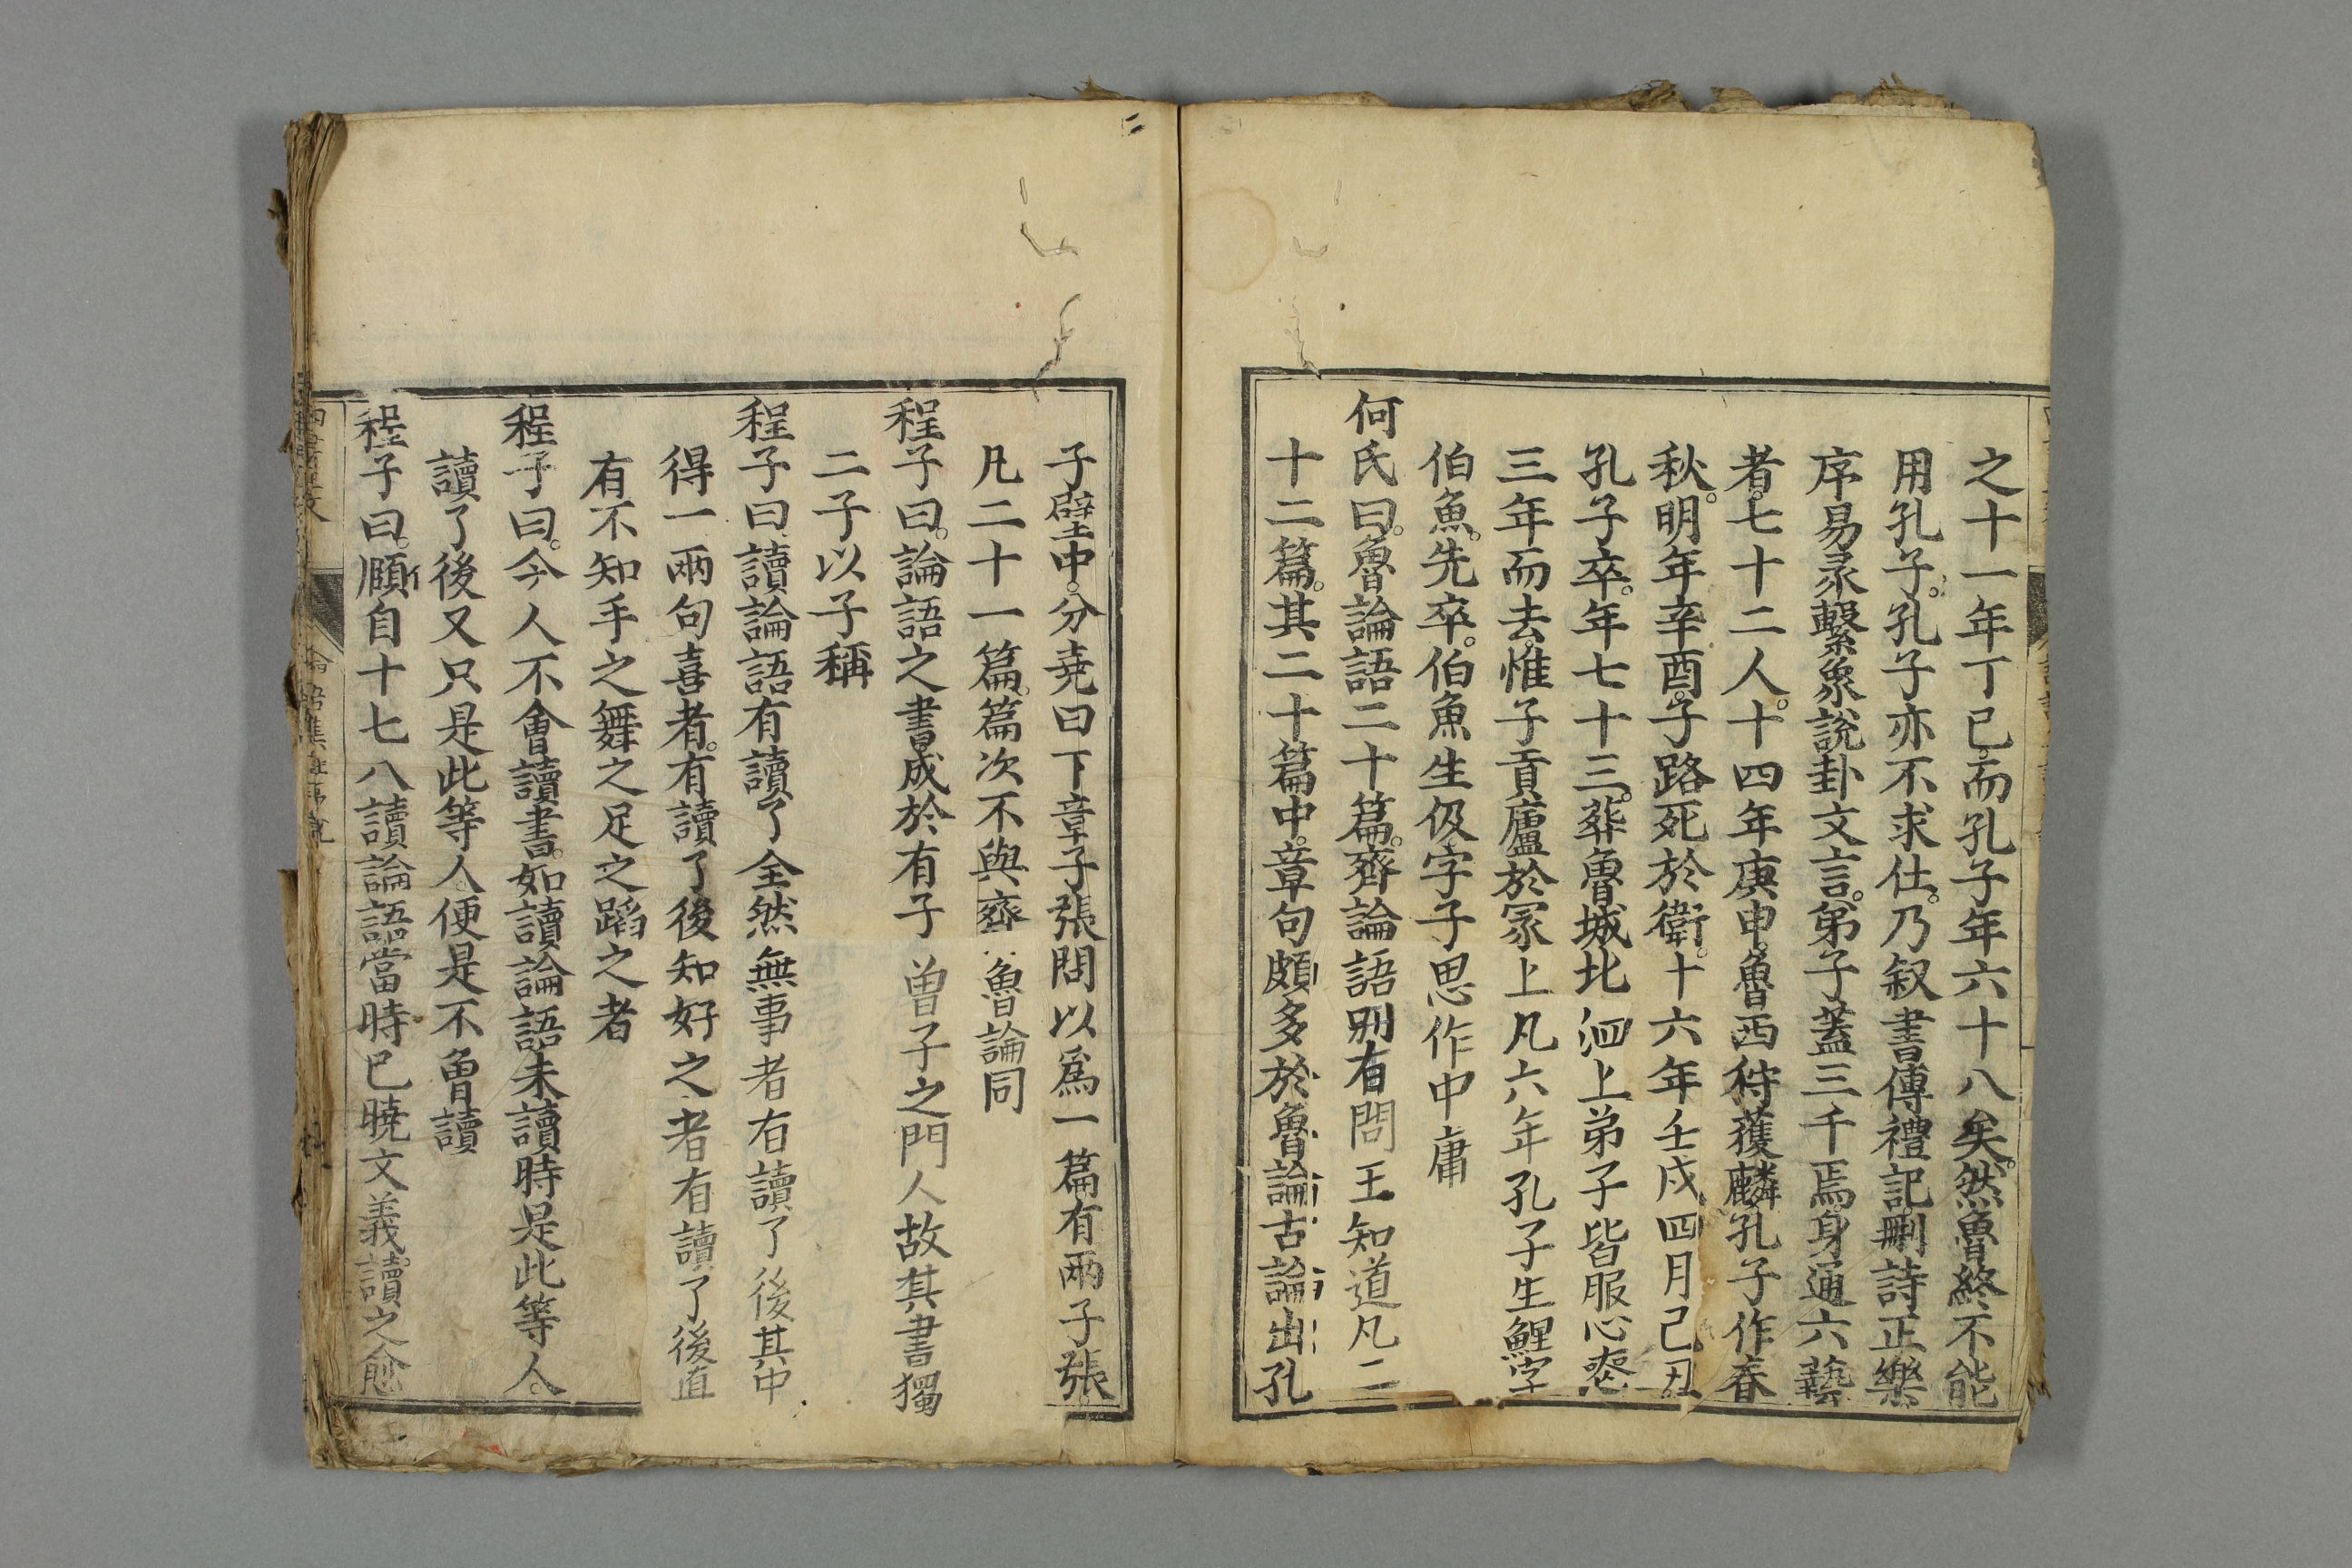 之十一年丁巳。而孔子年六十八矣。然魯終不能
用孔子。孔子亦不求仕。乃叙書傳禮記刪詩正樂
序易彖繫象說卦文言。弟子蓋三千焉。身通六藝
者。七十二人。十四年庚申。魯西狩獲麟孔子作春
秋。明年辛酉。子路死於衛。十六年壬戌四月己丑。
孔子卒。年七十三。葬魯城北泗上弟子皆服心喪
三年而去。惟子貢廬於冢上凡六年孔子生鯉字
伯魚。先卒。伯魚生伋字子思作中庸
何氏曰。魯論語二十篇。齊論語別有問王知道凡二
十二篇。其二十篇中。章句頗多於魯論古論出孔
子壁中。分堯曰下章子張問以為一篇有兩子張
凡二十一篇。篇次不與齊魯論同
程子曰。論語之書成於有子曾子之門人故其書獨
二子以子稱
程子曰讀論語有讀了全然無事者有讀了後其中
得一兩句喜者。有讀了後知好之者有讀了後直
有不知手之舞之足之蹈之者
程子曰。今人不會讀書。如讀論語未讀時是此等人。
讀了後又只是此等人。便是不曾讀
程子曰。頤自十七八讀論語當時已曉文義。讀之愈